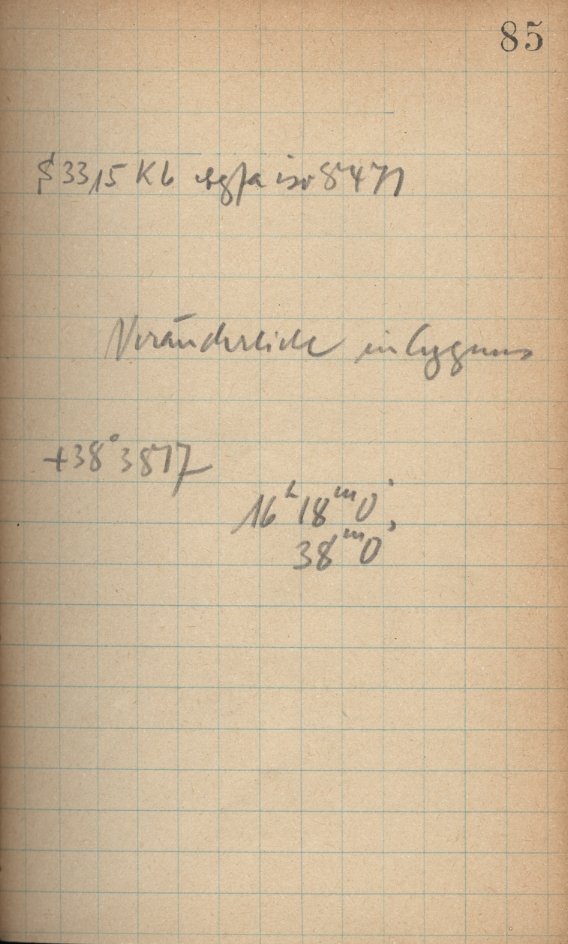 85
§ 33,15 Kb
Veränderliche in Cygnus
+38° 3817
16ʰ 18ᵐ 0ˢ
38ᵐ 0ˢ